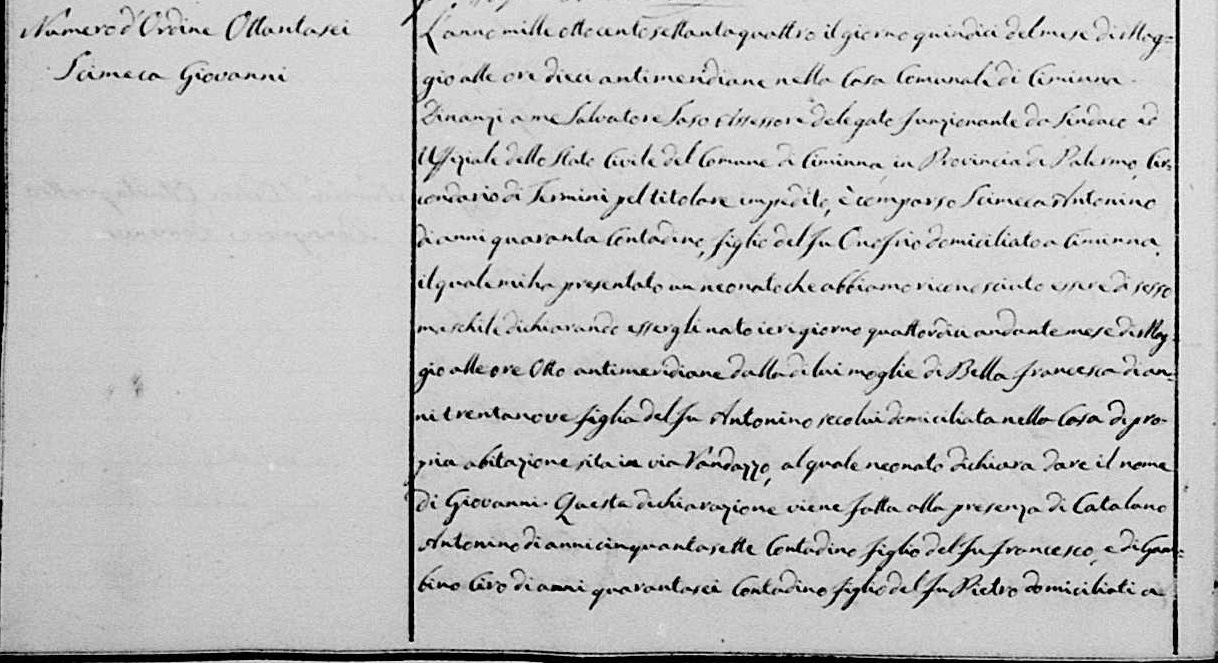 Numero d'Ordine Ottantasei
Scimeca Giovanni
L'anno mille ottocento settantaquattro il giorno quindici del mese di Mag=
gio alle ore dieci antimeridiane nella Casa Comunale di Ciminna.
Dinanzi a me Salvatore Saso Assessore delegato funzionante da Sindaco ed
Uffiziale dello Stato Civile del Comune di Ciminna in Provincia di Palermo, Cir=
condario di Termini pel titolare impedito, è comparso Scimeca Antonino
di anni quaranta Contadino, figlio del fu Onofrio domiciliato a Ciminna,
il quale mi ha presentato un neonato che abbiamo riconosciuto essere di sesso
maschile dichiarando essergli nato ieri giorno quattordici andante mese di Mag=
gio alle ore Otto antimeridiane dalla di lui moglie di Bella Francesca di an=
ni trentanove figlia del fu Antonino seco lui domiciliata nella Casa di pro=
pria abitazione sita in via Vandazzo, al quale neonato dichiara dare il nome
di Giovanni. Questa dichiarazione viene fatta alla presenza di Catalano
Antonino di anni cinquantasette Contadino figlio del fu Francesco, e di Gam=
bino Ciro di anni quarantasei Contadino figlio del fu Pietro domiciliati a